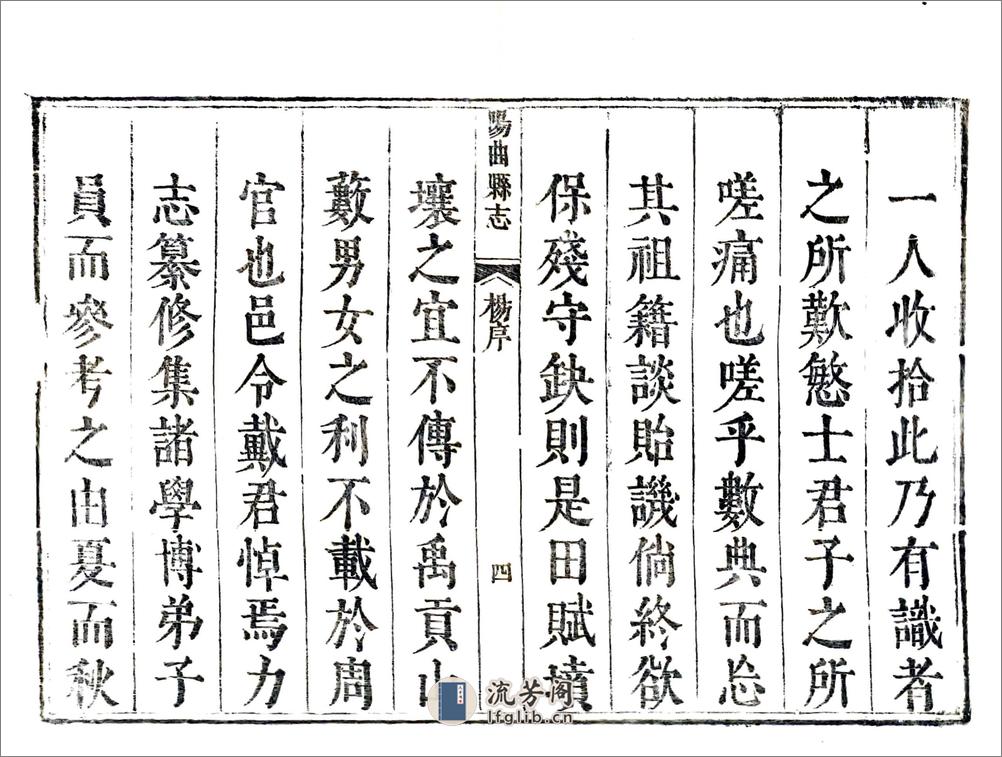 一人收拾此乃有識者
之所歎慜士君子之所
嗟痛也嗟乎數典而忘
其祖籍談貽譏倘終欲
保殘守缺則是田賦墳
陽曲縣志 楊序 四
壤之宜不傳於禹貢山
藪男女之利不載於周
官也邑令戴君悼焉力
志纂修集諸學博弟子
員而參考之由夏而秋
流芳阁
lfglib.cn